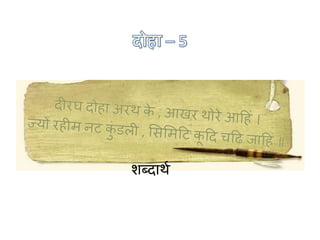 दोहा – 5
दीरघ दोहा अरथ के , आखर थोरे आहिं ।
ज्यों रहीम नट कुंडली , सिमिटि कूदि चढि जाहिं ॥
शब्दार्थ